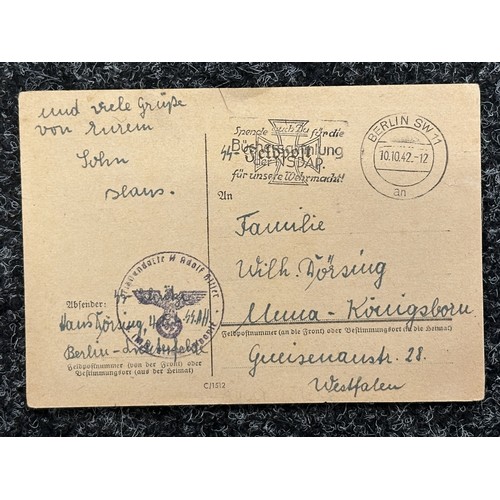 und viele Grüße
von Eurem
Sohn
Hans.
Spende auch Du für die
Büchersammlung
der NSDAP.
für unsere Wehrmacht!
SS-Feldpost
BERLIN SW 11
10.10.42.-12
an
An
Familie
Wilh. Dörsing
Unna-Königsborn
Feldpostnummer (an die Front) oder Bestimmungsort (in die Heimat)
Gneisenaustr. 28.
Westfalen
Adolf Hitler
Absender:
Hans Dörsing,
Berlin-Lichterfelde
Feldpostnummer (von der Front) oder
Bestimmungsort (aus der Heimat)
C/1512